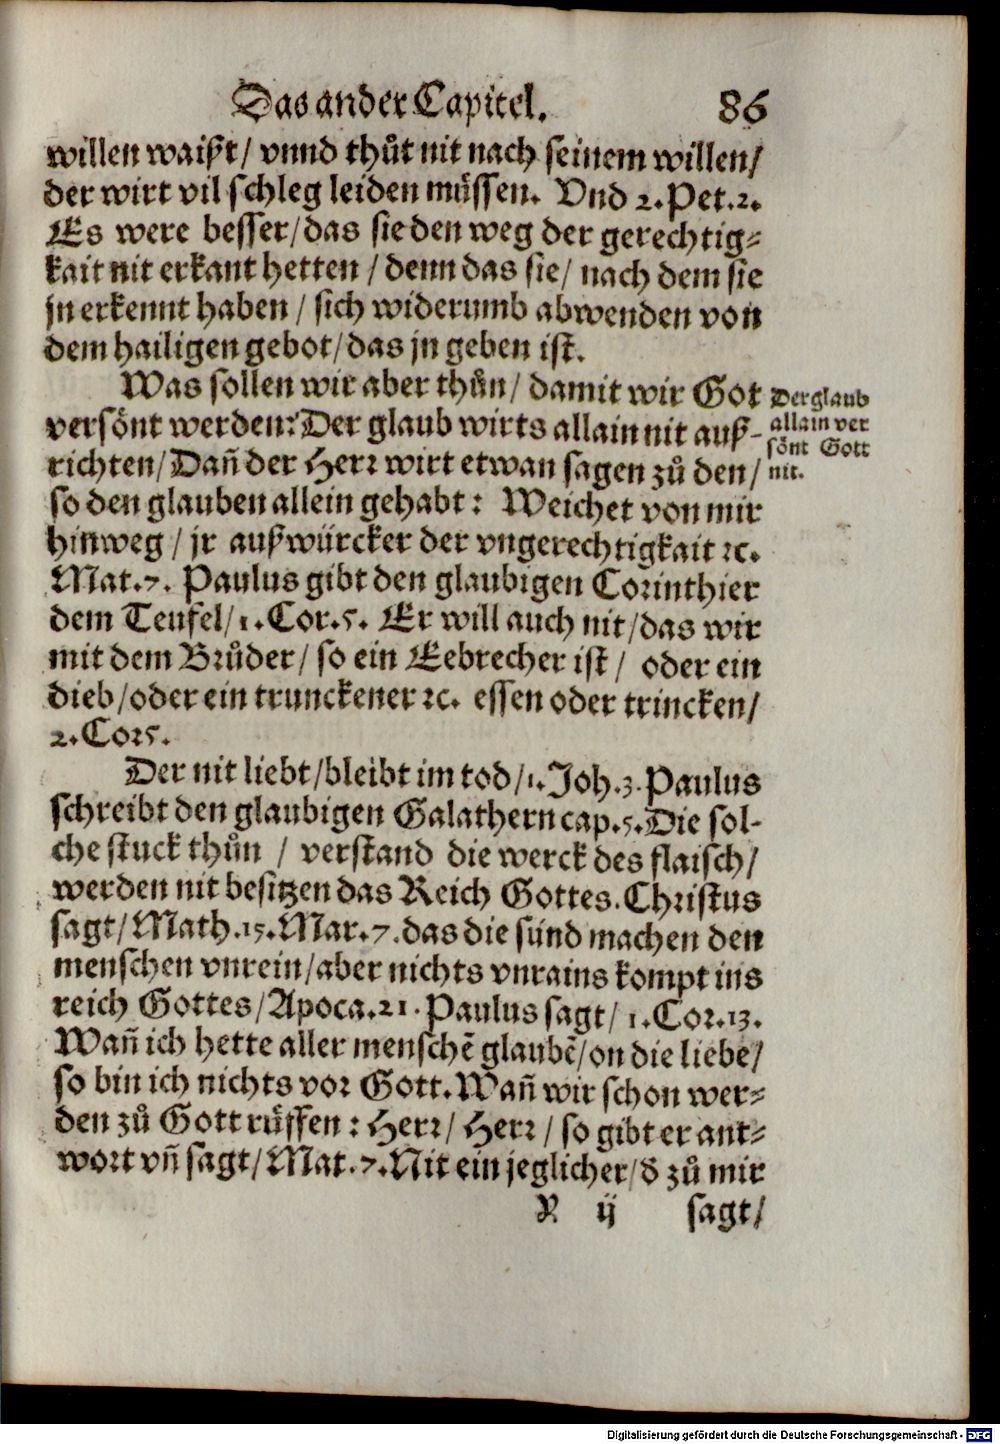 Das ander Capitel. 86
willen waißt/ vnnd thůt nit nach seinem willen/
der wirt vil schleg leiden müssen. Vnd 2. Pet. 2.
Es were besser/ das sie den weg der gerechtig⸗
kait nit erkant hetten / denn das sie/ nach dem sie
jn erkennt haben / sich widerumb abwenden von
dem hailigen gebot/ das jn geben ist.
Was sollen wir aber thůn/ damit wir Got
versönt werden? Der glaub wirts allain nit auß-
richten/ Dañ der Herr wirt etwan sagen zů den/
so den glauben allein gehabt: Weichet von mir
hinweg / jr außwürcker der vngerechtigkait ꝛc.
Mat. 7. Paulus gibt den glaubigen Corinthier
dem Teufel/ 1. Cor. 5. Er will auch nit/ das wir
mit dem Brůder/ so ein Eebrecher ist / oder ein
dieb/ oder ein trunckener ꝛc. essen oder trincken/
2. Cor5.
Der nit liebt/ bleibt im tod/ 1. Joh. 3. Paulus
schreibt den glaubigen Galathern cap. 5. Die sol-
che stuck thůn / verstand die werck des flaisch/
werden nit besitzen das Reich Gottes. Christus
sagt/ Math. 15. Mar. 7. das die sünd machen den
menschen vnrein/ aber nichts vnrains kompt ins
reich Gottes/ Apoca. 21. Paulus sagt/ 1. Cor. 13.
Wañ ich hette aller menschē glaubē/ on die liebe/
so bin ich nichts vor Gott. Wañ wir schon wer⸗
den zů Gott rüffen: Herr/ Herr / so gibt er ant⸗
wort vñ sagt/ Mat. 7. Nit ein jeglicher/ d̄ zů mir
Y ij sagt/
Der glaub
allain ver
sönt Gott
nit.
Digitalisierung gefördert durch die Deutsche Forschungsgemeinschaft - DFG